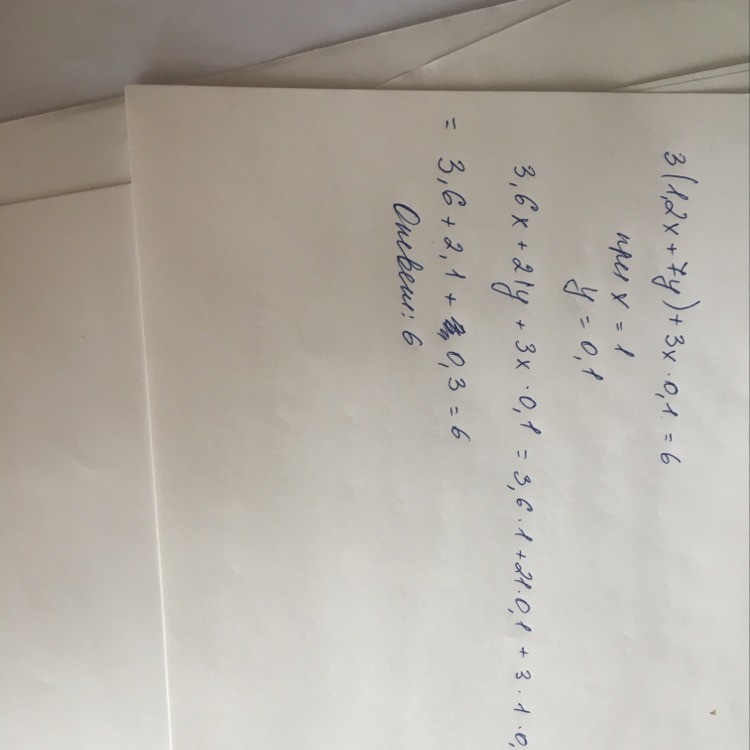 3(1,2x+7y)+3x·0,1=6
при x=1
y=0,1
3,6x+21y+3x·0,1=3,6·1+21·0,1+3·1·0,
=3,6+2,1+0,3=6
Ответ: 6